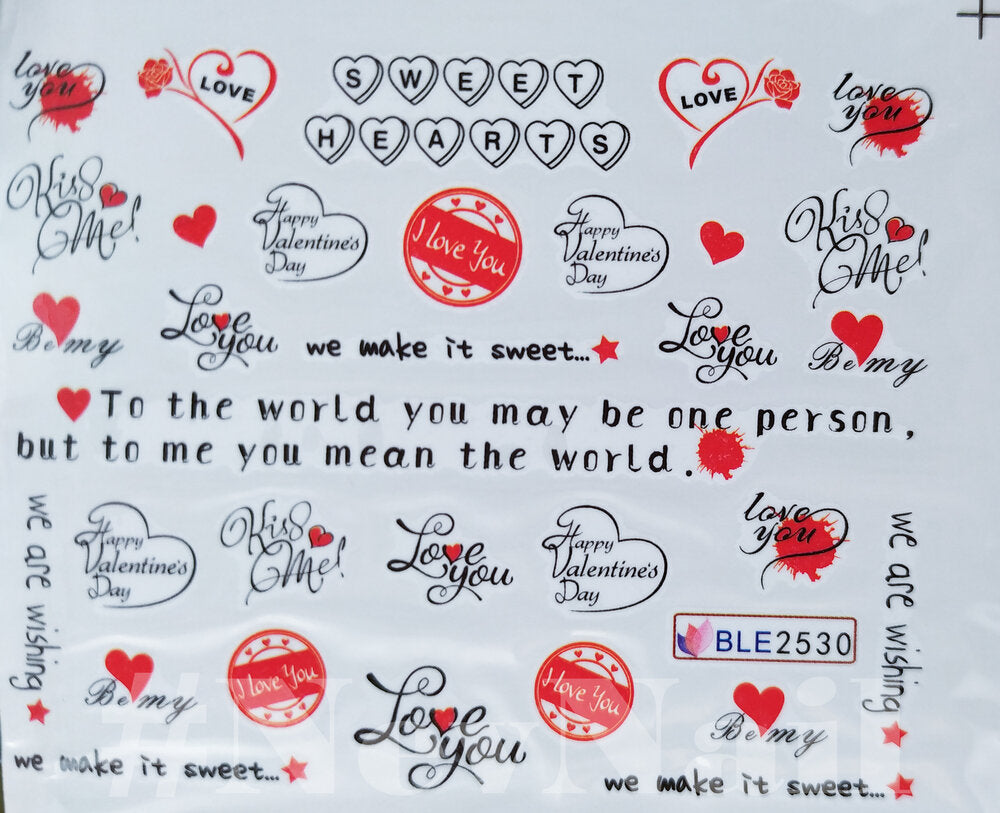 love
you
LOVE
SWEET
HEARTS
LOVE
love
you
Kiss
Me!
Happy
Valentine's
Day
I love You
Happy
Valentine's
Day
Kiss
Me!
Be my
Love
you
we make it sweet...
Love
you
Be my
To the world you may be one person,
but to me you mean the world.
we are wishing
Happy
Valentine's
Day
Kiss
Me!
Love
you
Happy
Valentine's
Day
love
you
we are wishing
BLE2530
Be my
I love You
Love
you
I love You
Be my
we make it sweet...
we make it sweet...
#NovNail